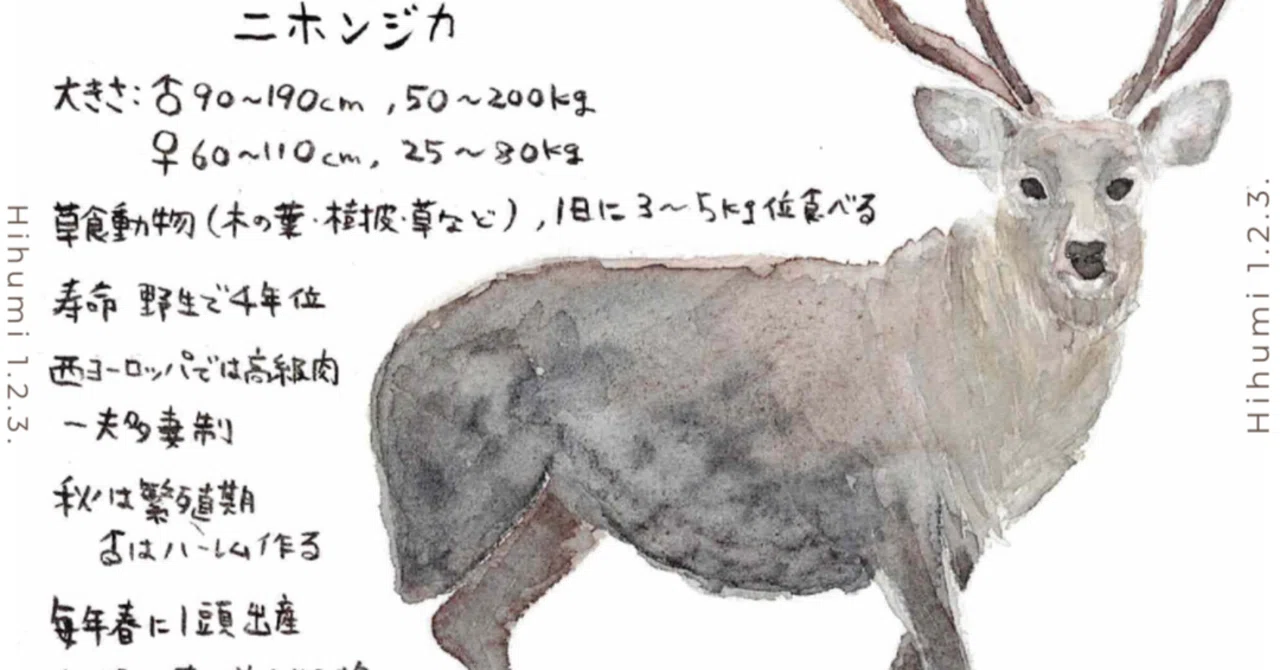 ニホンジカ
大きさ:♂90~190cm,50~200kg
♀60~110cm,25~80kg
草食動物(木の葉・樹皮・草など),1日に3~5kg位食べる
寿命 野生で4年位
西ヨーロッパでは高級肉
一夫多妻制
秋は繁殖期
♂はハーレム作る
毎年春に1頭出産
Hihumi 1.2.3.
Hihumi 1.2.3.